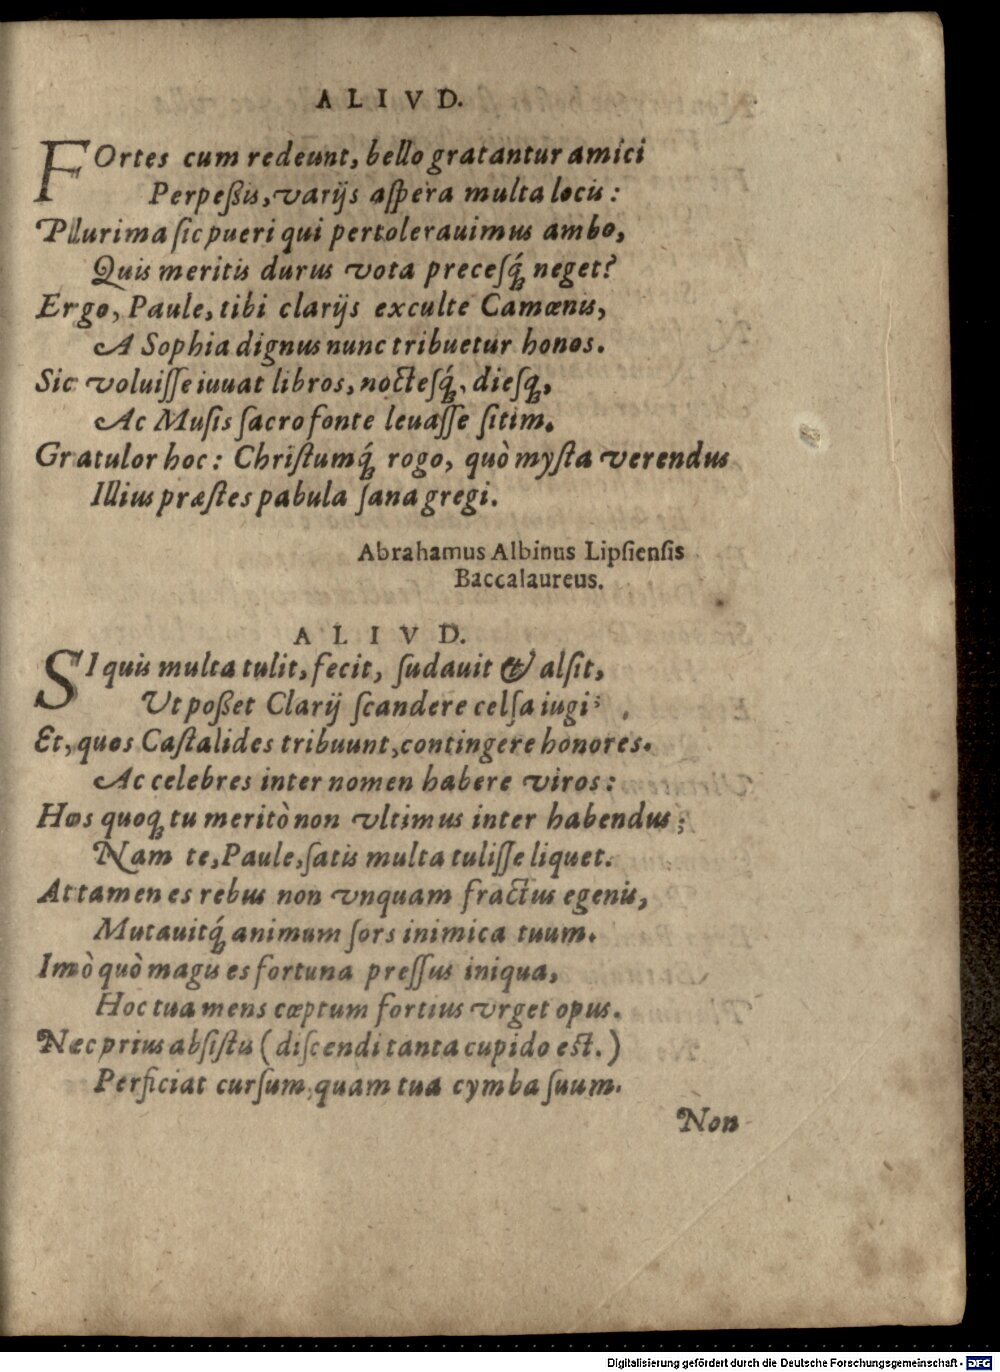 ALIVD.
FOrtes cum redeunt, bello gratantur amici
Perpeßis, varijs aſpera multa locis:
Pllurima ſic pueri qui pertolerauimus ambo,
Quis meritis durus vota preceſq́ꝫ neget?
Ergo, Paule, tibi clarijs exculte Camœnis,
A Sophia dignus nunc tribuetur honos.
Sic voluiſſe iuuat libros, nocteſq́ꝫ, dieſqꝫ,
Ac Muſis ſacro fonte leuaſſe ſitim.
Gratulor hoc: Chriſtumq́ꝫ rogo, quò myſta verendus
Illius præſtes pabula ſana gregi.
Abrahamus Albinus Lipſienſis
Baccalaureus.
ALIVD.
SI quis multa tulit, fecit, ſudauit & alſit,
Ut poßet Clarij ſcandere celſa iugi;
Et, quos Caſtalides tribuunt, contingere honores.
Ac celebres inter nomen habere viros:
Hos quoqꝫ tu meritò non vltimus inter habendus;
Nam te, Paule, ſatis multa tuliſſe liquet.
Attamen es rebus non vnquam fractus egenis,
Mutauitq́ꝫ animum ſors inimica tuum.
Imò quò magis es fortuna preſſus iniqua,
Hoc tua mens cœptum fortius vrget opus.
Nec prius abſiſtis (diſcendi tanta cupido est.)
Perficiat curſum, quam tua cymba ſuum.
Non
Digitalisierung gefördert durch die Deutsche Forschungsgemeinschaft - DFG